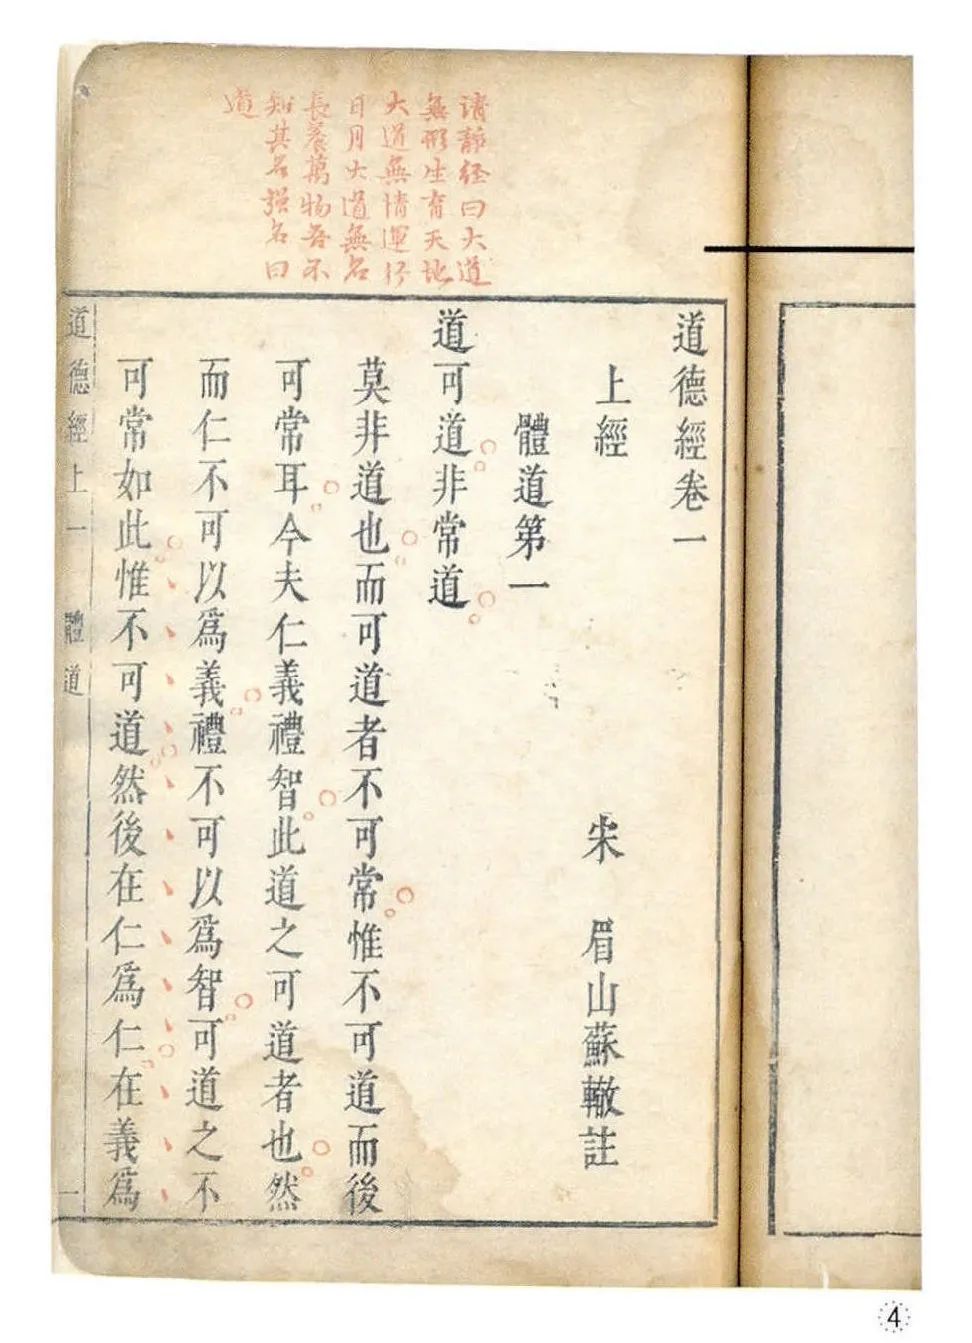 清靜経曰大道
無形生育天地
大道無情運行
日月大道無名
長養萬物吾不
知其名强名曰
道
道德經卷一
上經
宋 眉山蘇轍註
體道第一
道可道非常道
莫非道也而可道者不可常惟不可道而後
可常耳今夫仁義禮智此道之可道者也然
而仁不可以爲義禮不可以爲智可道之不
可常如此惟不可道然後在仁爲仁在義爲
道德經上一 體道 一
4